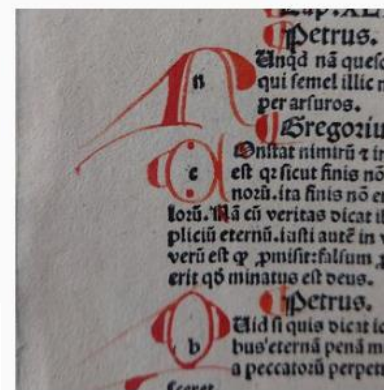 Cap. XL
Petrus.
n Unqd nā ques
qui semel illic
per arsuros.
Gregoriu
c Onstat nimirū ⁊ i
est qꝫ sicut finis nō
norū. ita finis nō e
lorū. Nā cū veritas dicat i
pliciū eternū. iusti autē in v
verū est ꝙ ꝓmisit: falsum
erit qð minatus est deus.
Petrus.
b Uid si quis dicat i
bus eternā penā m
a peccatorū perpet